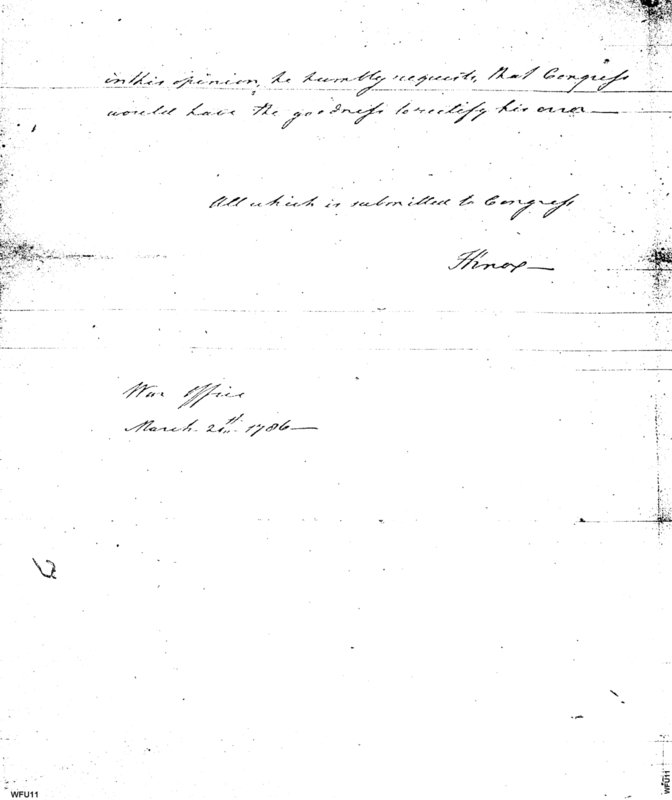 in this opinion, he humbly requests, that Congress
would have the goodness to rectify his error—
All which is submitted to Congress
HKnox—
War Office
March 1786—
WFU11
WFU11